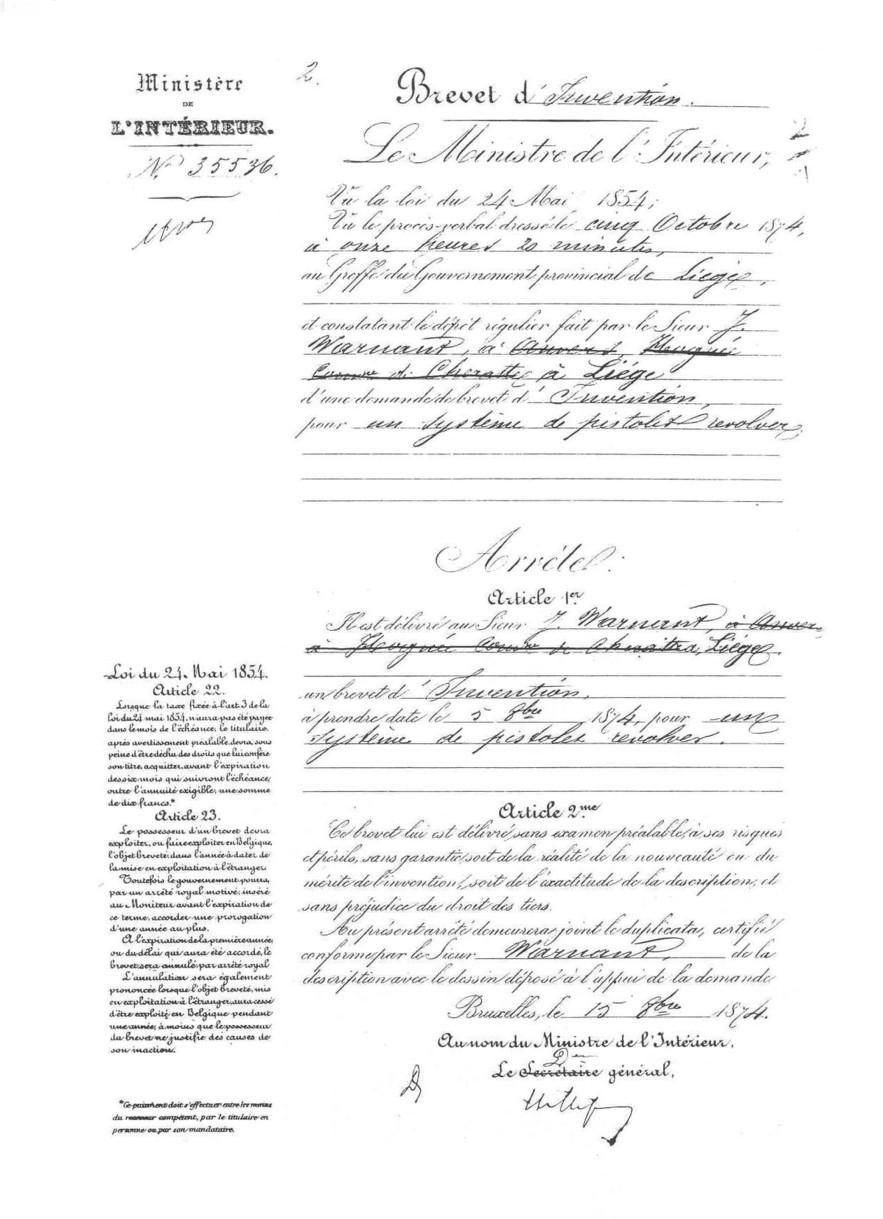 Ministère
DE
L'INTÉRIEUR.
N.º 35536.
2.
Brevet d'Invention.
Le Ministre de l'Intérieur,
Vu la loi du 24 Mai 1854;
Vu le procès-verbal dressé le cinq Octobre 1874,
à onze heures 20 minutes,
au Greffe du Gouvernement provincial de Liége,
et constatant le dépôt régulier fait par le Sieur J.
Warnant, à Anvers, Hoignée
Comne de Cheratte à Liége
d'une demande de brevet d'Invention,
pour un système de pistolet revolver,
Arrête:
Article 1er
Il est délivré au Sieur J. Warnant, à Anver
à Hoignée Comne de Cheratte, Liége.
un brevet d'Invention,
à prendre date le 5 8bre 1874, pour un
système de pistolet revolver.
Article 2me
Ce brevet lui est délivré sans examen préalable, à ses risques
et périls, sans garantie soit de la réalité de la nouveauté ou du
mérite de l'invention, soit de l'exactitude de la description, et
sans préjudice du droit des tiers.
Au présent arrêté demeurera joint le duplicata, certifié
conforme par le Sieur Warnant, de la
description avec le dessin déposé à l'appui de la demande
Bruxelles, le 15 8bre 1874.
Au nom du Ministre de l'Intérieur,
Le Secrétaire général,
Loi du 24 Mai 1854.
Article 22.
Lorsque la taxe fixée à l'art 3 de la
loi du 24 mai 1854, n'aura pas été payée
dans le mois de l'échéance, le titulaire,
après avertissement préalable, devra, sous
peine d'être déchu des droits que lui confère
son titre, acquitter, avant l'expiration
des six mois qui suivront l'échéance,
outre l'annuité exigible, une somme
de dix francs.*
Article 23.
Le possesseur d'un brevet devra
exploiter, ou faire exploiter en Belgique,
l'objet breveté, dans l'année à dater de
la mise en exploitation à l'étranger.
Toutefois le gouvernement pourra,
par un arrêté royal motivé, inséré
au Moniteur avant l'expiration de
ce terme, accorder une prorogation
d'une année au plus.
A l'expiration de la première année,
ou du délai qui aura été accordé, le
brevet sera annulé par arrêté royal
L'annulation sera également
prononcée lorsque l'objet breveté, mis
en exploitation à l'étranger, aura cessé
d'être exploité en Belgique pendant
une année, à moins que le possesseur
du brevet ne justifie des causes de
son inaction.
*Ce paiement doit s'effectuer entre les mains
du receveur compétent, par le titulaire en
personne ou par son mandataire.